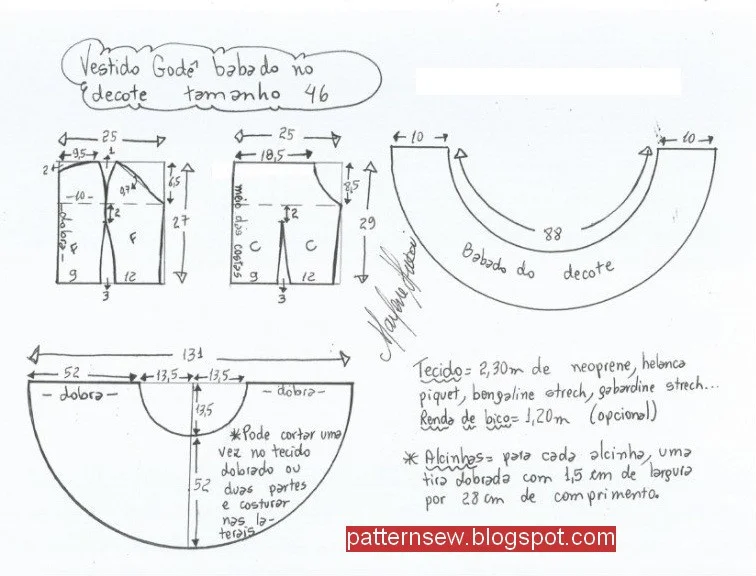 Vestido Godê babado no
decote tamanho 46
25
9,5
1
2
10
0,7
6,5
27
2
dobra
F
F
9
12
3
25
18,5
8,5
29
2
meio das costas
C
C
9
12
3
10
10
88
Babado do decote
131
52
13,5
13,5
- dobra -
- dobra -
13,5
52
*Pode cortar uma
vez no tecido
dobrado ou
duas partes
e costurar
nas la-
terais
Tecido= 2,30m de neoprene, helanca
piquet, bengaline strech, gabardine strech...
Renda de bico= 1,20m (opcional)
* Alcinhas= para cada alcinha, uma
tira dobrada com 1,5 cm de largura
por 28 cm de comprimento.
patternsew.blogspot.com